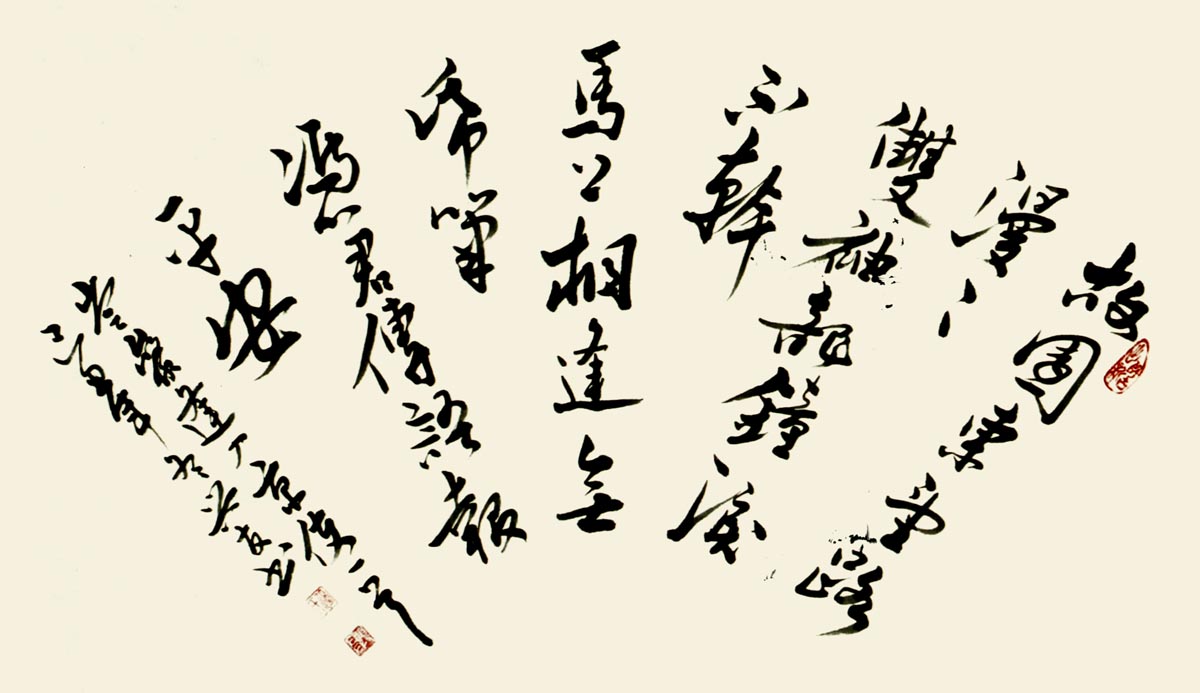 故園東望路
漫々
雙袖龍鐘淚
不幹
馬上相逢無
帋筆
憑君傳語報
平安
岑參逢入京使